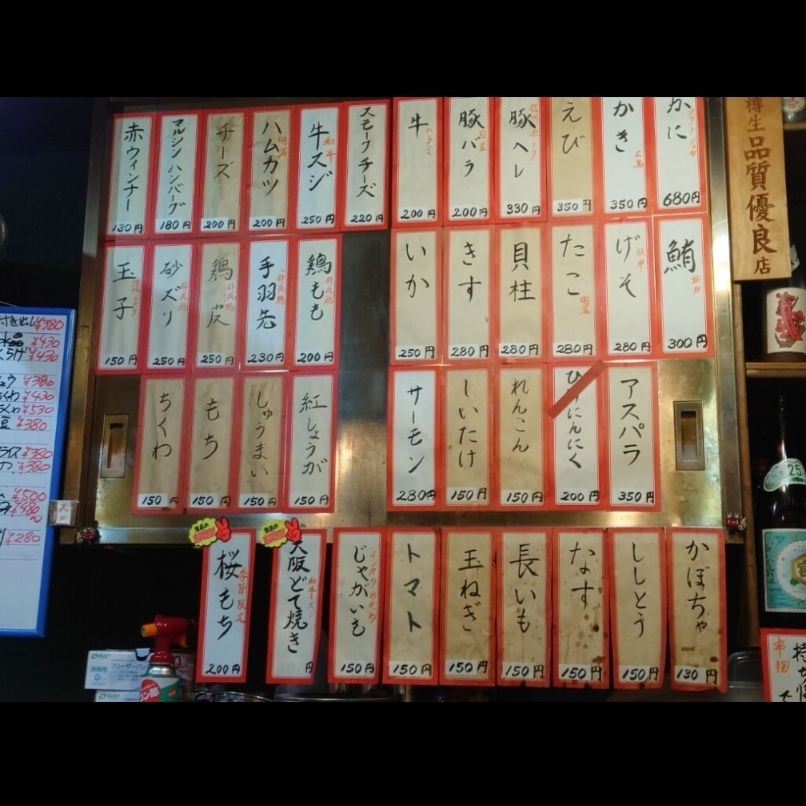 かに
680円
かき
350円
えび
350円
豚ヘレ
330円
豚バラ
200円
牛
200円
スモークチーズ
220円
牛スジ
和牛
250円
ハムカツ
200円
チーズ
200円
マルシンハンバーグ
180円
赤ウィンナー
130円
鮪
300円
げそ
280円
たこ
280円
貝柱
280円
きす
280円
いか
250円
鶏もも
200円
手羽先
230円
鶏皮
250円
砂ズリ
250円
玉子
150円
アスパラ
350円
にんにく
200円
れんこん
150円
しいたけ
150円
サーモン
280円
紅しょうが
150円
しゅうまい
150円
もち
150円
ちくわ
150円
かぼちゃ
130円
ししとう
150円
なす
150円
長いも
150円
玉ねぎ
150円
トマト
150円
じゃがいも
150円
大阪どて焼き
桜もち
季節限定
200円
樽生
品質優良店
¥380
¥430
¥430
¥380
¥430
¥530
¥380
¥380
¥380
¥500
¥480
¥280
フリーザーバッグ
串揚
25